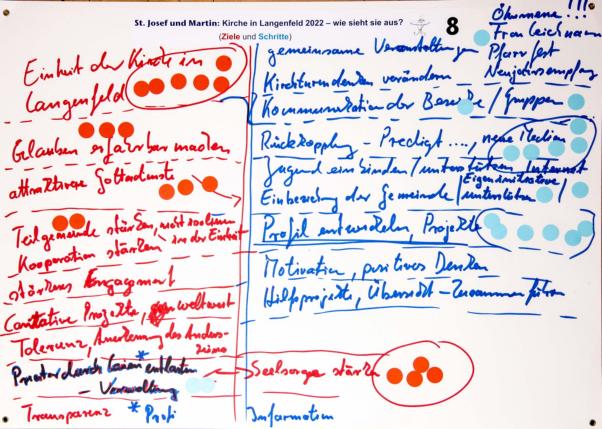 St. Josef und Martin: Kirche in Langenfeld 2022 – wie sieht sie aus?
(Ziele und Schritte)
8
Ökumene !!!
Fronleichnam
Pfarrfest
Neujahrsempfang
Einheit der Kirche in
Langenfeld
Glauben erfahrbar machen
attraktivere Gottesdienste
Teilgemeinde stärken, nicht
Kooperation stärken in der Einheit
stärkeres Engagement
Caritative Projekte, weltweit
Toleranz, Anerkennung des Anders-
seins
Priester durch Laien * entlasten
– Verwaltung
Transparenz * Profi
gemeinsame Veranstaltungen
Kirchturmdenken verändern
Kommunikation der Bereiche / Gruppen
Rückkopplung – Predigt ..., neue Medien
Jugend einbinden / unterstützen Internet
Einbeziehung der Gemeinde / Eigeninitiative
unterstützen
Profil entwickeln, Projekte
Motivation, positives Denken
Hilfsprojekte, Übersicht – Zusammenführen
Seelsorge stärken
Information